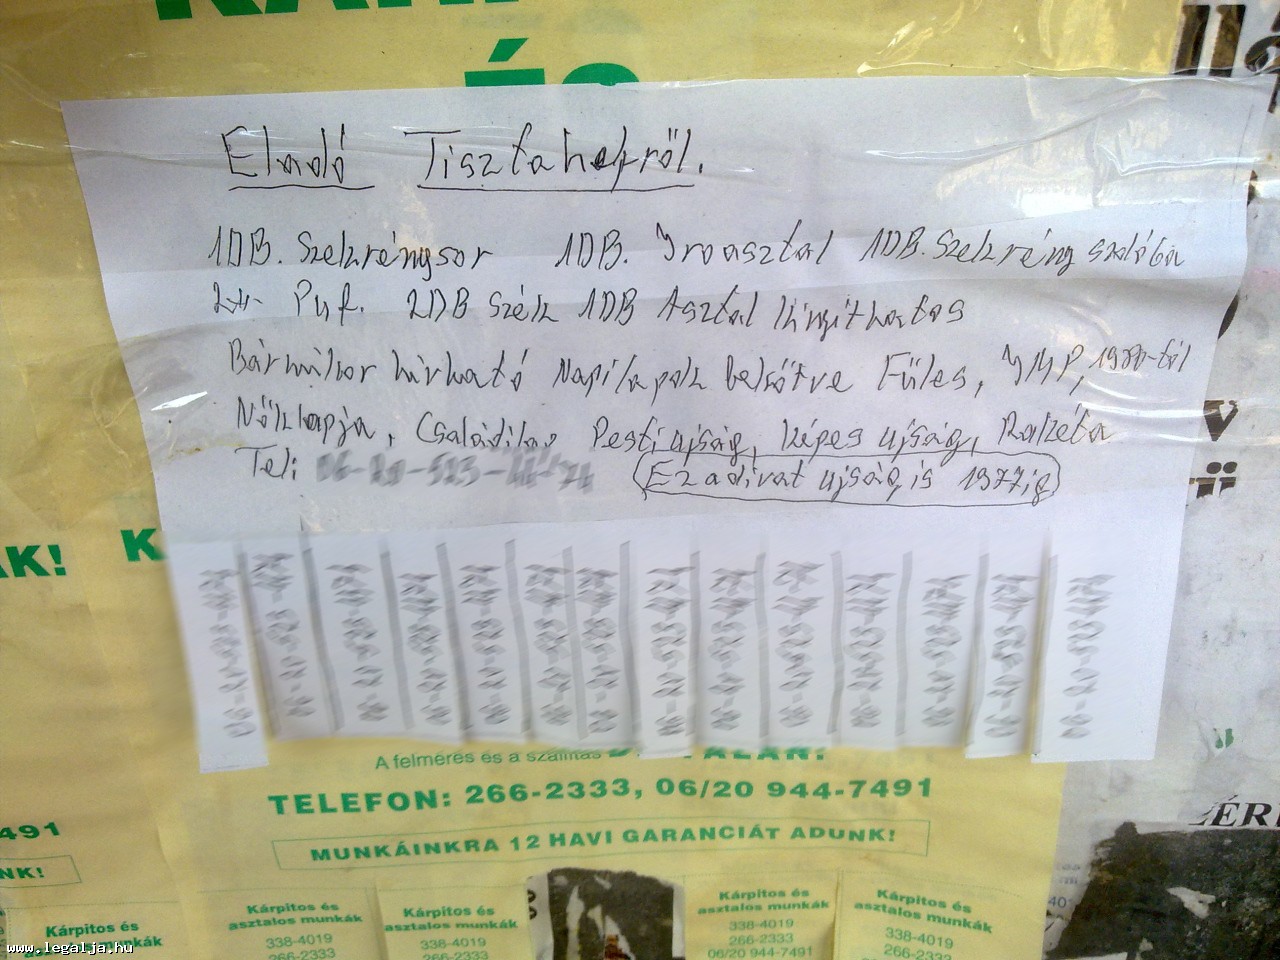 ÉS
Eladó Tisztahelyről.
1DB. Szekrénysor 1DB. Iroasztal 1DB. Szekrény szobába
Puf. 2DB Szék 1DB Asztal kinyithatos
Bármikor hivható Napilapok bekötve Füles, IMP, 1980-tól
Nőklapja, Családilap Pesti ujság, képes ujság, Rakéta
Tel:
Ez a divat ujság is 1977ig
AK!
A felmérés és a szállítás
TELEFON: 266-2333, 06/20 944-7491
MUNKÁINKRA 12 HAVI GARANCIÁT ADUNK!
491
NK!
Kárpitos és
asztalos munkák
338-4019
266-2333
Kárpitos és
asztalos munkák
338-4019
Kárpitos és
asztalos munkák
338-4019
266-2333
06/20 944-7491
Kárpitos és
asztalos munkák
338-4019
266-2333
Kárpitos és
munkák
www.legalja.hu